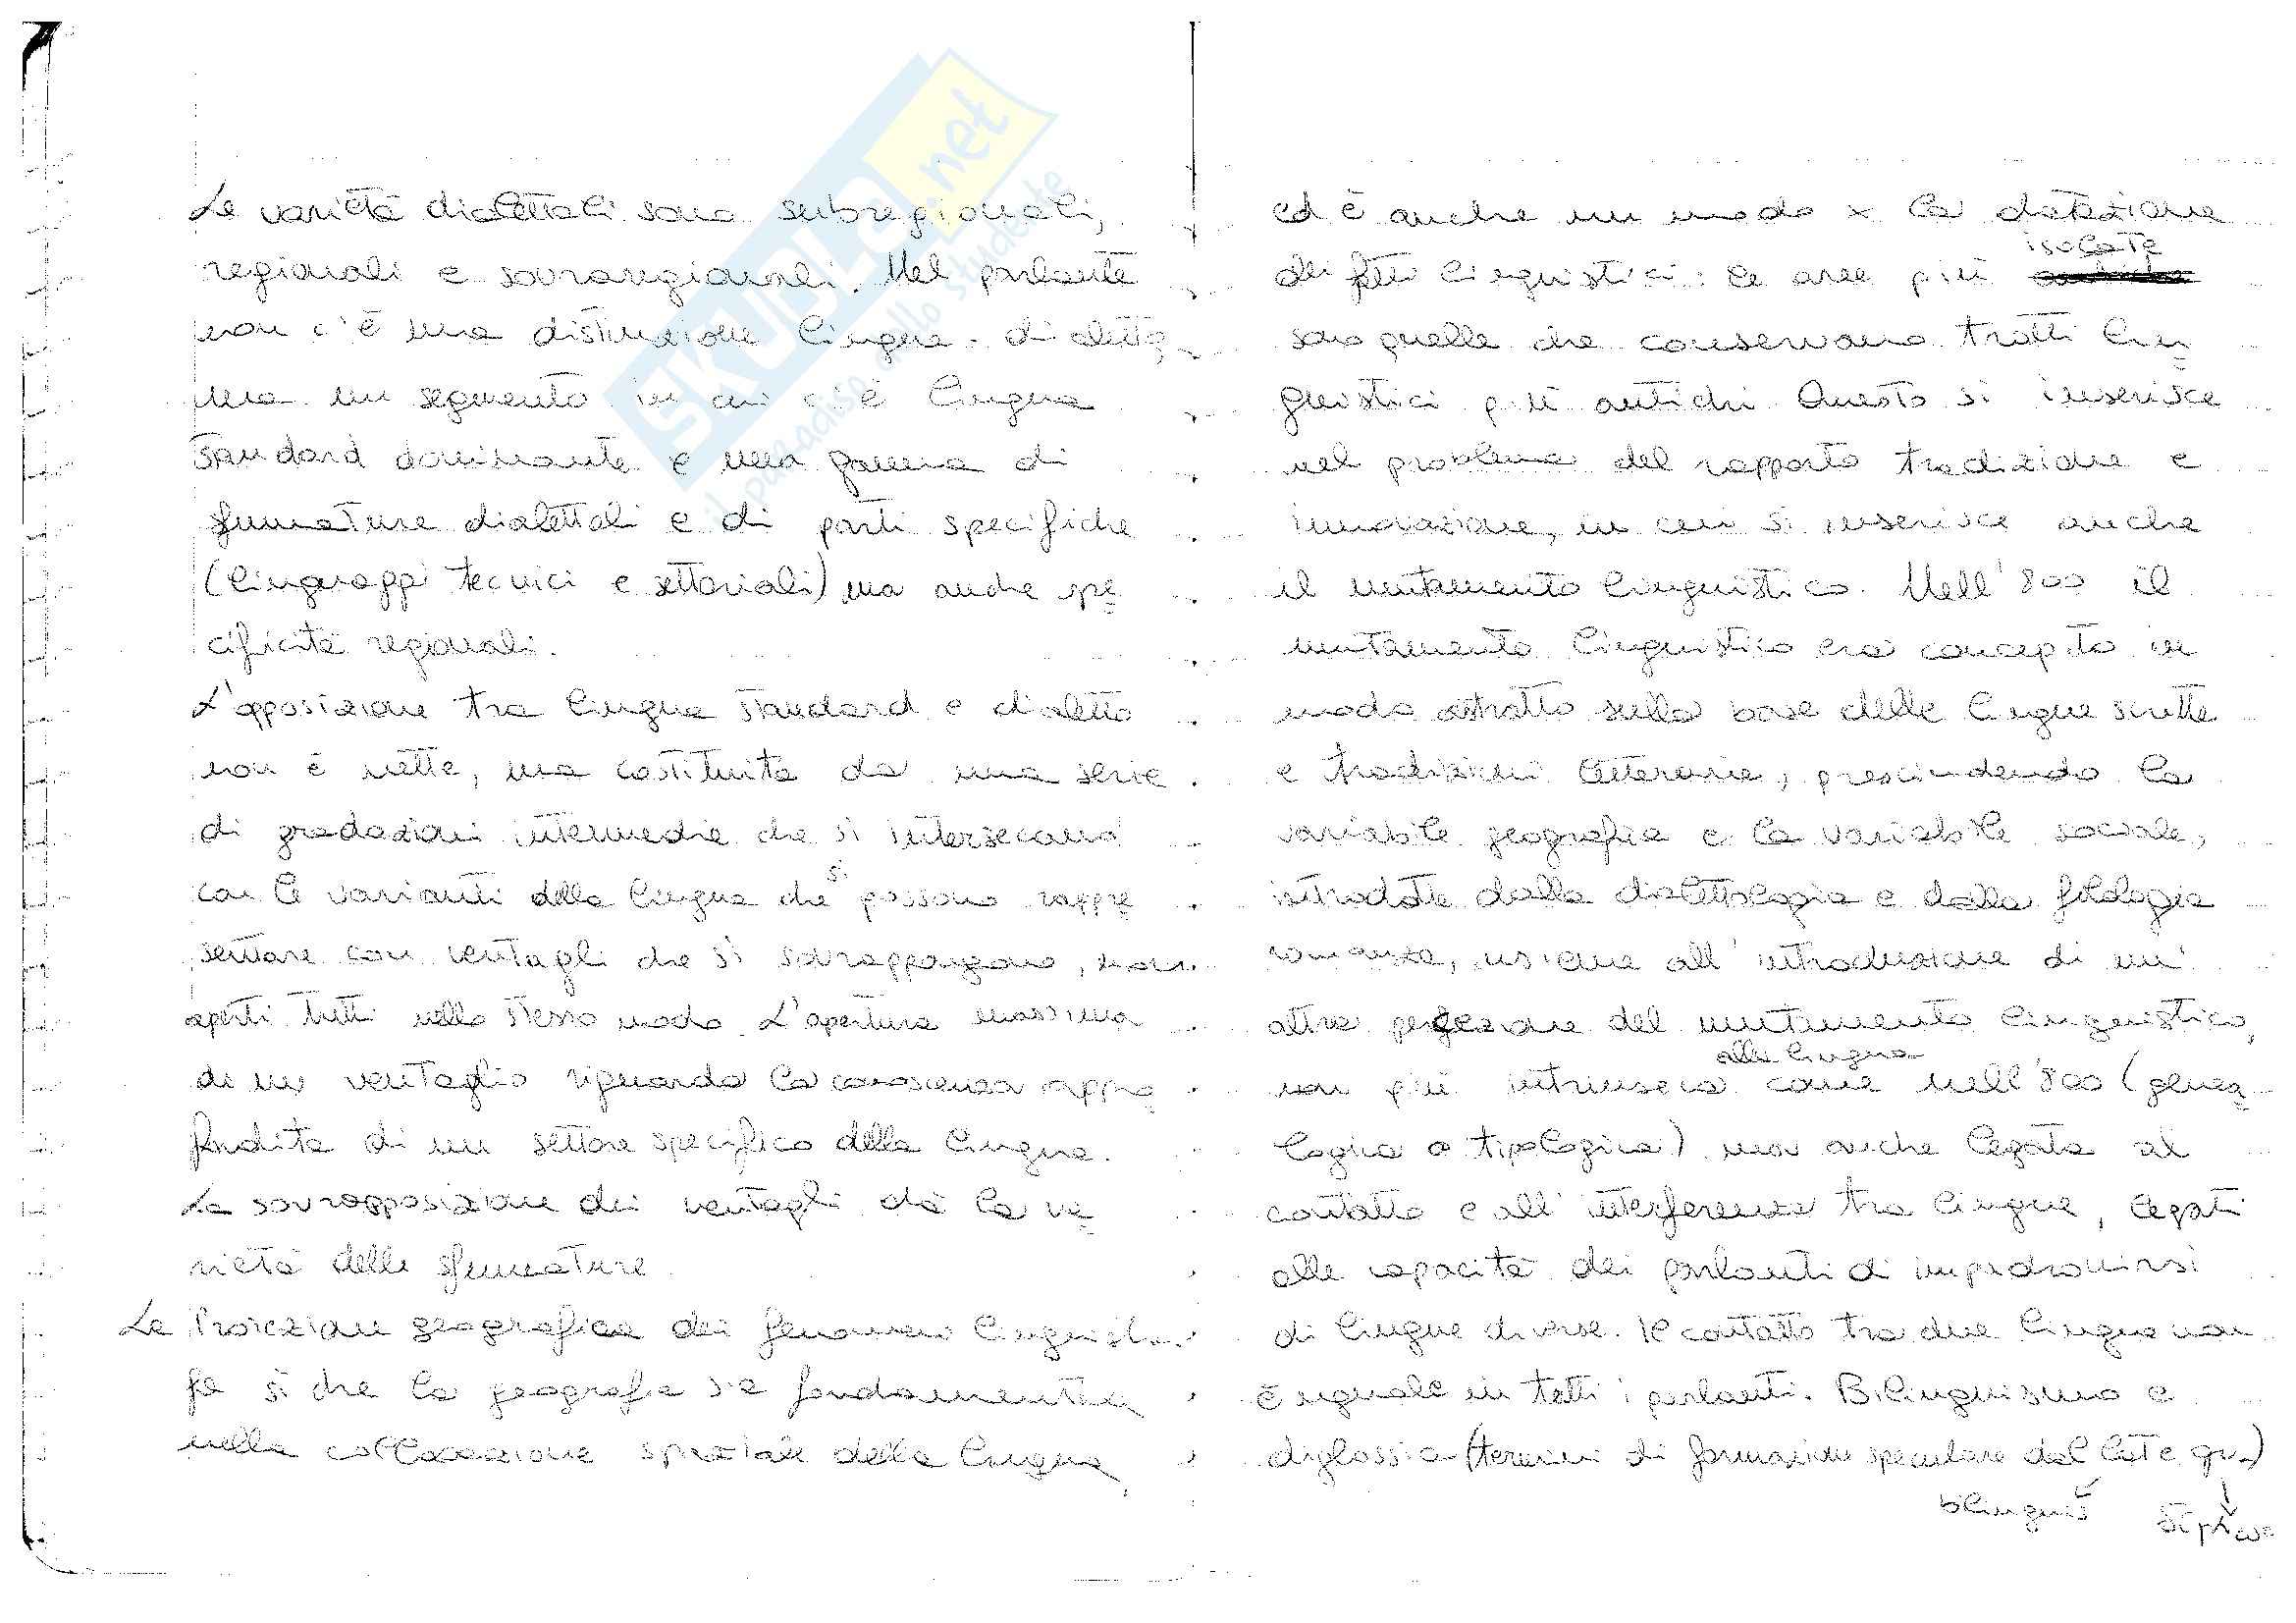 Le varietà dialettali sono subregionali,
regionali e sovraregionali. Nel parlante
non c'è una distinzione lingua-dialetto,
ma un segmento in cui c'è lingua
standard dominante e una gamma di
sfumature dialettali e di parti specifiche
(linguaggi tecnici e settoriali) ma anche spe
cificità regionali.
L'opposizione tra lingua standard e dialetto
non è netta, ma costituita da una serie
di gradazioni intermedie che si intersecano
con le varianti della lingua che si possono rappre
sentare con ventagli che si sovrappongono, non
aperti tutti nello stesso modo. L'apertura massima
di un ventaglio riguarda la conoscenza appro
fondita di un settore specifico della lingua.
La sovrapposizione dei ventagli dà la va
rietà delle sfumature.
La Proiezione geografica dei fenomeni linguistici
fa sì che la geografia sia fondamentale
nella collocazione spaziale della lingua,
ed è anche un modo x la datazione
dei fatti linguistici: le aree più isolate
sono quelle che conservano tratti lin
guistici più antichi. Questo si inserisce
nel problema del rapporto tradizione e
innovazione, in cui si inserisce anche
il mutamento linguistico. Nell'800 il
mutamento linguistico era concepito in
modo astratto sulla base delle lingue scritte
e tradizioni letterarie, prescindendo la
variabile geografia e la variabile sociale,
introdotte dalla dialettologia e dalla filologia
romanza, insieme all'introduzione di un'
altra percezione del mutamento linguistico,
non più intrinseca alla lingua come nell'800 (genea
logica o tipologica) ma anche legata al
contatto e all'interferenza tra lingue, legati
alle capacità dei parlanti di impadronirsi
di lingue diverse. Il contatto tra due lingue non
è uguale in tutti i parlanti. Bilinguismo e
diglossia (termini di formazione speculare dal lat e gr)
bilinguis
SKUOLA.net
il paradiso dello studente